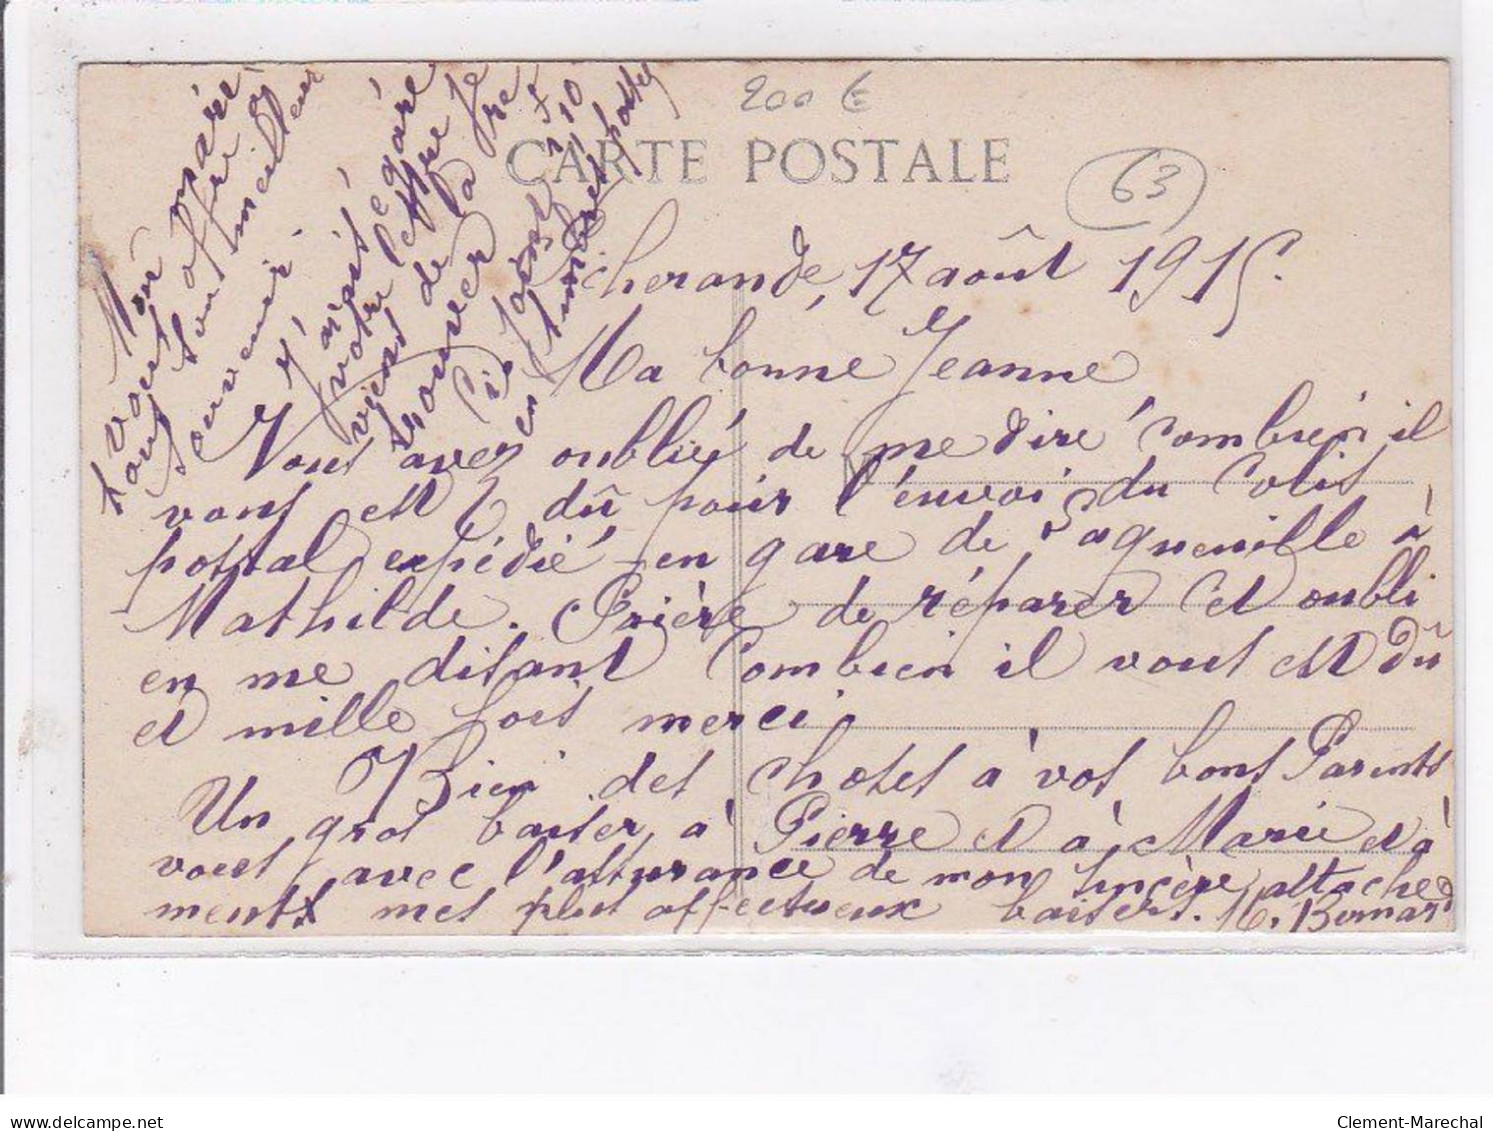 200 €
CARTE POSTALE
63
Picherande, 17 août 1915.
Ma bonne Jeanne
Vous avez oublié de me dire combien il
vous est dû pour l'envoi du colis
postal expédié en gare de Laqueuille à
Mathilde. Prière de réparer cet oubli
en me disant combien il vous est dû
et mille fois merci.
Bien des choses à vos bons Parents
Un gros baiser, à Pierre et à Marie et à
vous avec l'assurance de mon sincère attache
ment mes plus affectueux baisers. M. Bernard
Mon mari
vous offre à
tous son meilleur
souvenir.
J'avais égaré
votre lettre je
viens de la re
trouver
Ci joint 1 F 10
en timbres poste
Clement-Marechal
delcampe.net